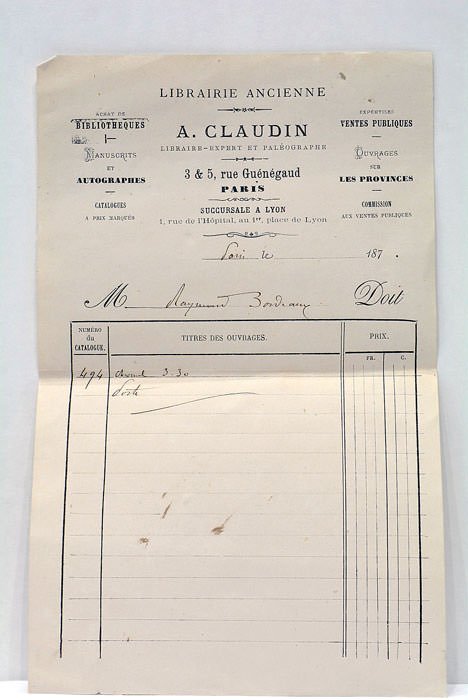 LIBRAIRIE ANCIENNE
ACHAT DE
BIBLIOTHEQUES
MANUSCRITS
ET
AUTOGRAPHES
CATALOGUES
A PRIX MARQUÉS
A. CLAUDIN
LIBRAIRE-EXPERT ET PALÉOGRAPHE
3 & 5, rue Guénégaud
PARIS
SUCCURSALE A LYON
1, rue de l'Hôpital, au 1er, place de Lyon
EXPERTISES
VENTES PUBLIQUES
OUVRAGES
SUR
LES PROVINCES
COMMISSION
AUX VENTES PUBLIQUES
Paris le 187
M Raymond Bordeaux Doit
NUMÉRO
du
CATALOGUE.
TITRES DES OUVRAGES.
PRIX.
FR. C.
494 3-30
Porte